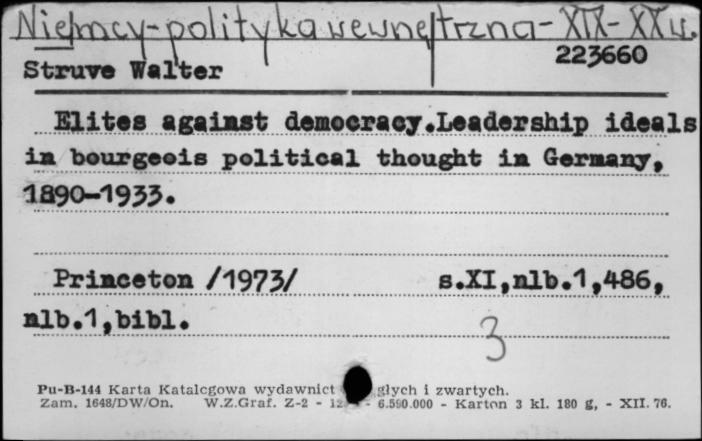 Niemcy-polityka wewnętrzna-XIX-XXw.
223660
Struve Walter
Elites against democracy.Leadership ideals
in bourgeois political thought in Germany,
1890-1933.
Princeton /1973/ s.XI,nlb.1,486,
nlb.1,bibl.
3
Pu-B-144 Karta Katalogowa wydawnict głych i zwartych.
Zam. 1648/DW/On. W.Z.Graf. Z-2 - 12 - 6.590.000 - Karton 3 kl. 180 g, - XII. 76.